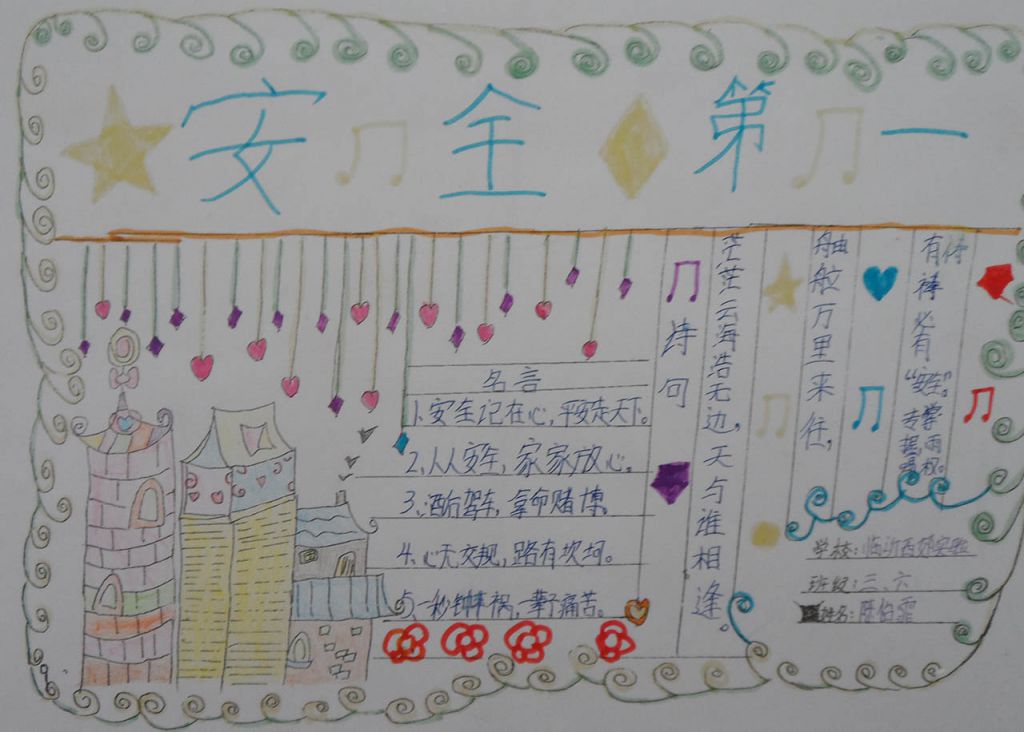 安全第一
名言
1、安全记在心,平安走天下。
2、人人安全,家家放心。
3、酒后驾车,拿命赌博。
4、心无交规,路有坎坷。
5、一秒钟车祸,一辈子痛苦。
诗句
茫茫云海浩无边,天与谁相逢。
舳舣万里来往,
有侍祷必有
“安全”。
专掌
学校:临沂西郊实验
班级:三、六
姓名:陈怡霏